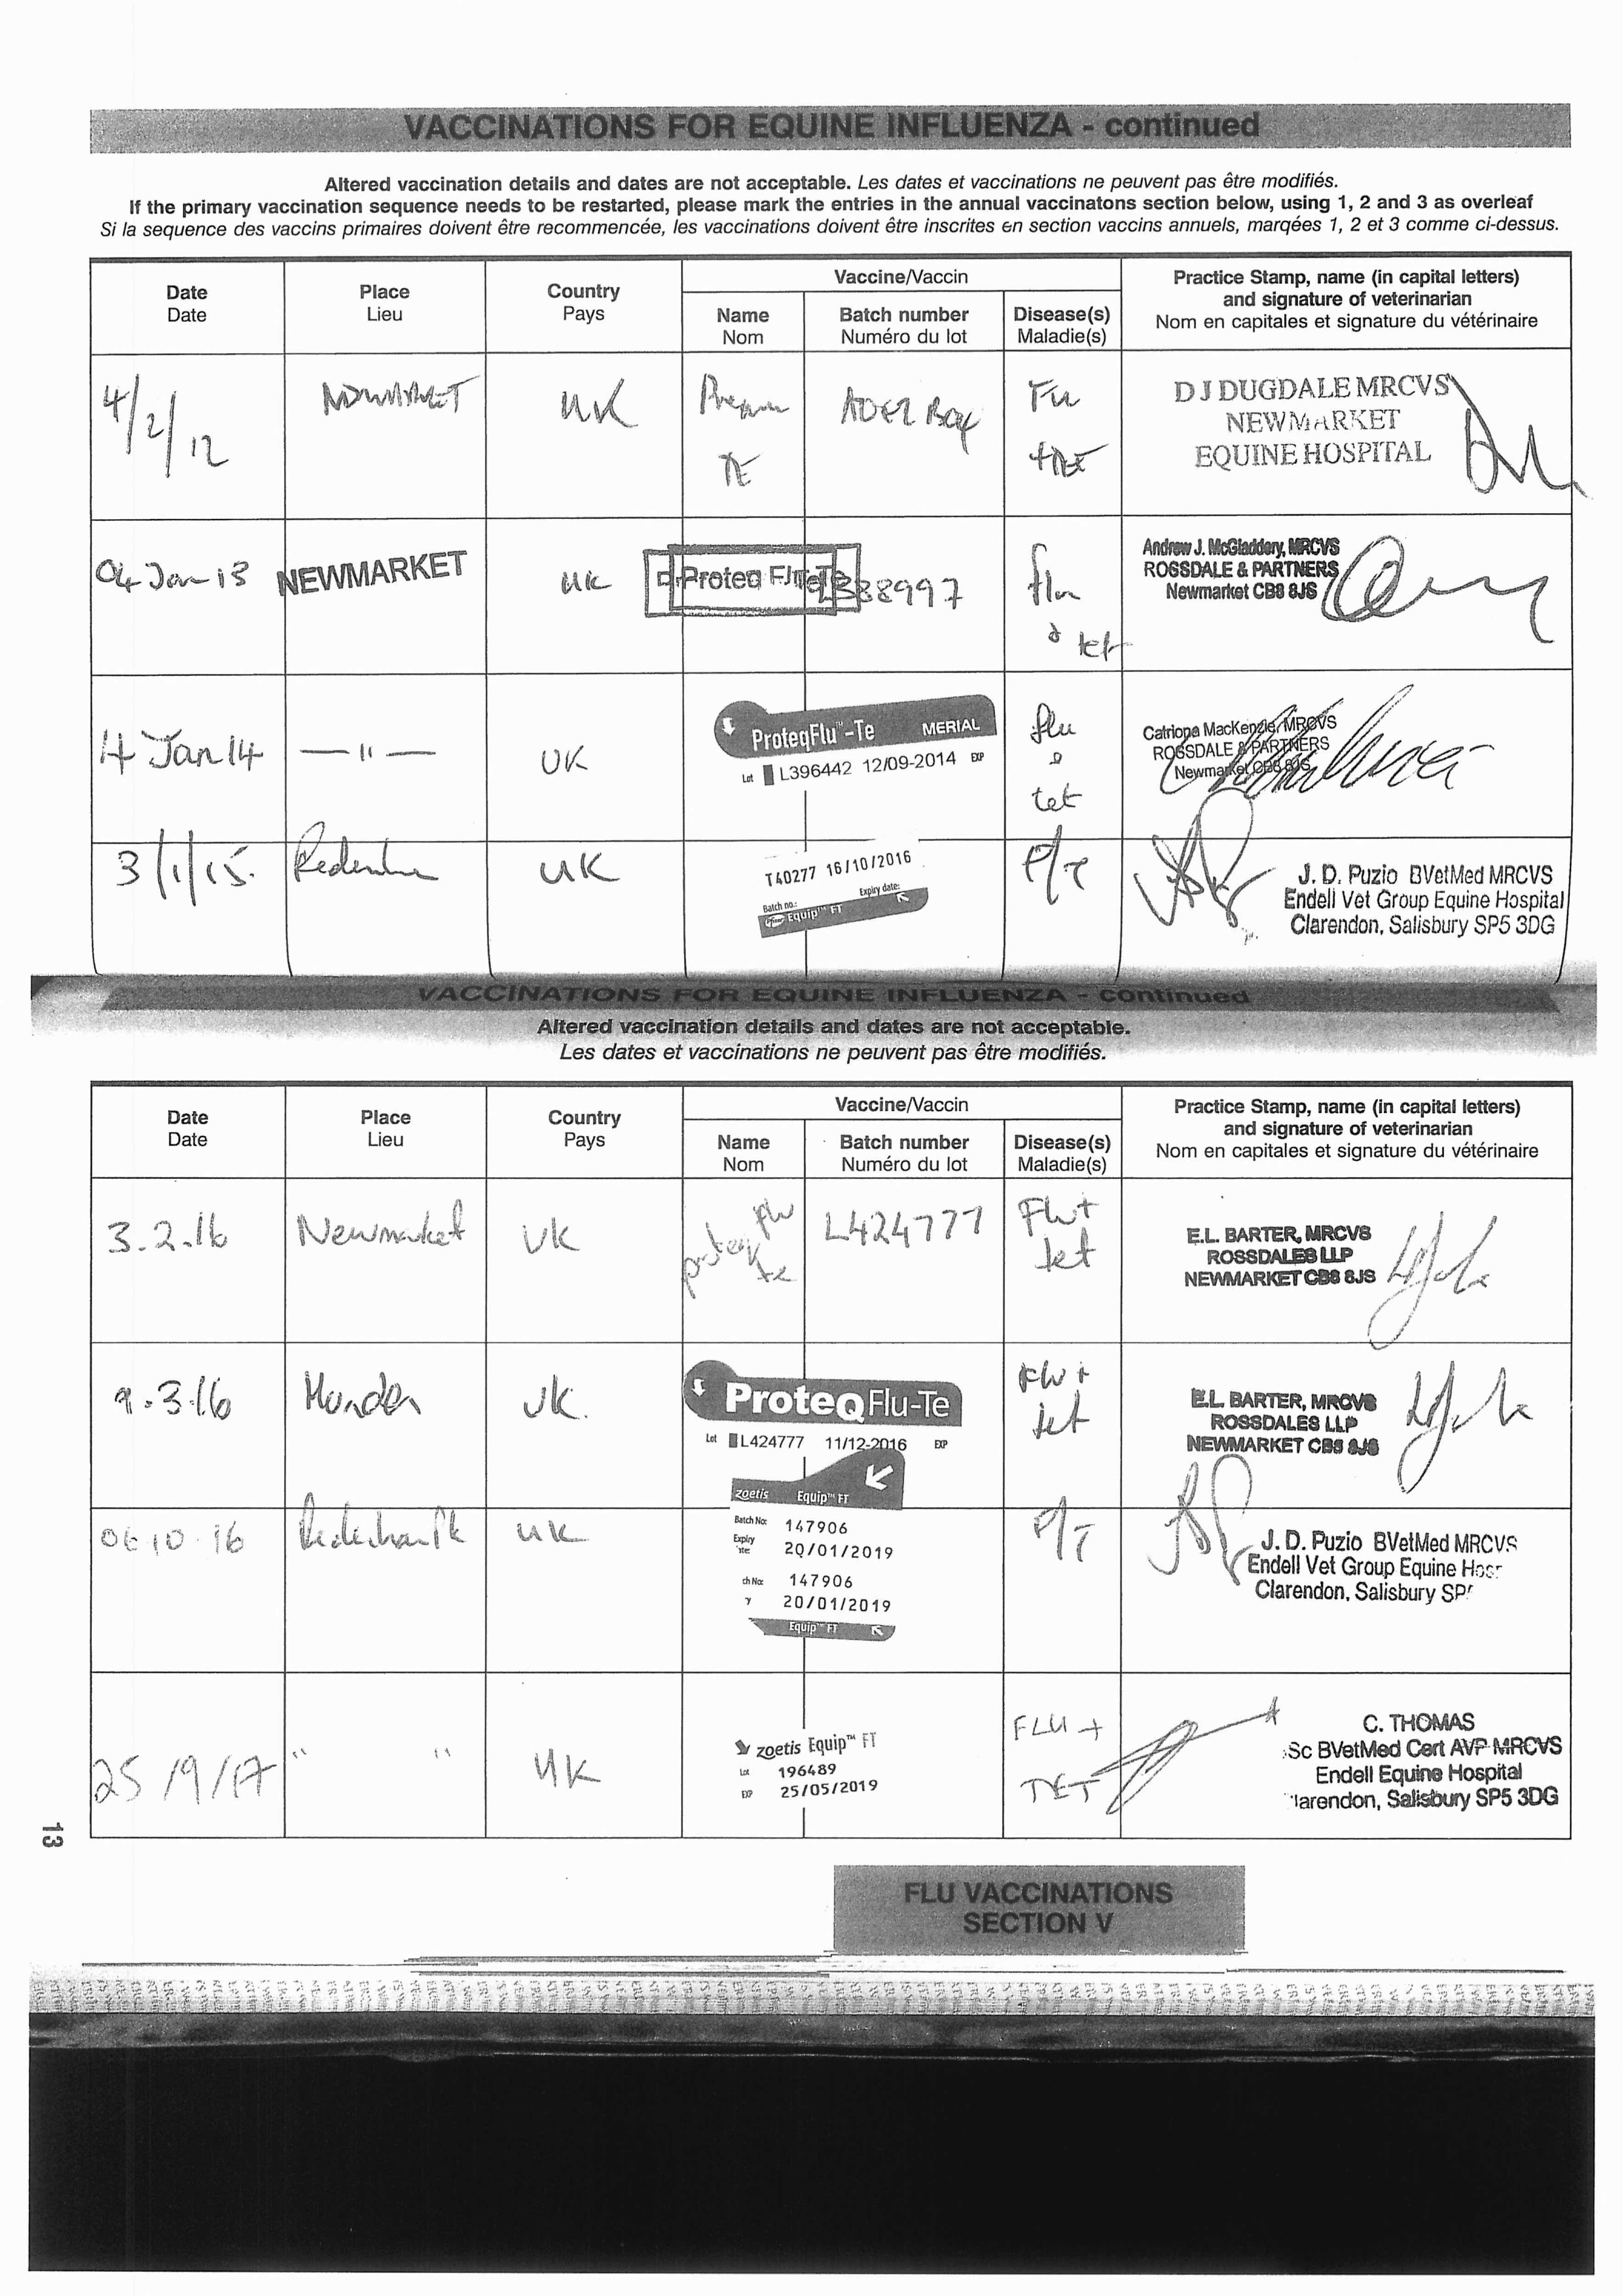 VACCINATIONS FOR EQUINE INFLUENZA - continued
Altered vaccination details and dates are not acceptable. Les dates et vaccinations ne peuvent pas être modifiés.
If the primary vaccination sequence needs to be restarted, please mark the entries in the annual vaccinatons section below, using 1, 2 and 3 as overleaf
Si la sequence des vaccins primaires doivent être recommencée, les vaccinations doivent être inscrites en section vaccins annuels, marqées 1, 2 et 3 comme ci-dessus.
Date
Date
Place
Lieu
Country
Pays
Vaccine/Vaccin
Name
Nom
Batch number
Numéro du lot
Disease(s)
Maladie(s)
Practice Stamp, name (in capital letters)
and signature of veterinarian
Nom en capitales et signature du vétérinaire
4/2/12
NEWMARKET
UK
TE
D J DUGDALE MRCVS
NEWMARKET
EQUINE HOSPITAL
04 Jan 13
NEWMARKET
UK
Proteq Flu-Te
L388997
flu
& tet
Andrew J. McGladdery, MRCVS
ROSSDALE & PARTNERS
Newmarket CB8 8JS
4 Jan 14
— " —
UK
ProteqFlu™-Te MERIAL
Lot L396442 12/09-2014 EXP
flu
&
tet
Catriona MacKenzie, MRCVS
ROSSDALE & PARTNERS
Newmarket CB8 8JS
3/1/15.
UK
T40277 16/10/2016
Batch no.: Expiry date:
Equip™ FT
F/T
J. D. Puzio BVetMed MRCVS
Endell Vet Group Equine Hospital
Clarendon, Salisbury SP5 3DG
VACCINATIONS FOR EQUINE INFLUENZA - continued
Altered vaccination details and dates are not acceptable.
Les dates et vaccinations ne peuvent pas être modifiés.
Date
Date
Place
Lieu
Country
Pays
Vaccine/Vaccin
Name
Nom
Batch number
Numéro du lot
Disease(s)
Maladie(s)
Practice Stamp, name (in capital letters)
and signature of veterinarian
Nom en capitales et signature du vétérinaire
3.2.16
Newmarket
UK
proteq flu
te
L424777
Flu +
tet
E.L. BARTER, MRCVS
ROSSDALES LLP
NEWMARKET CB8 8JS
9.3.16
UK.
ProteqFlu-Te
Lot L424777 11/12-2016 EXP
Flu +
tet
E.L. BARTER, MRCVS
ROSSDALES LLP
NEWMARKET CB8 8JS
06.10.16
UK
zoetis Equip™ FT
Batch No: 147906
Expiry
20/01/2019
ch No: 147906
y 20/01/2019
Equip™ FT
F/T
J. D. Puzio BVetMed MRCVS
Endell Vet Group Equine Hosp
Clarendon, Salisbury SP
25/9/17
" "
UK
zoetis Equip™ FT
Lot 196489
EXP 25/05/2019
FLU +
TET
C. THOMAS
Sc BVetMed Cert AVP MRCVS
Endell Equine Hospital
larendon, Salisbury SP5 3DG
13
FLU VACCINATIONS
SECTION V